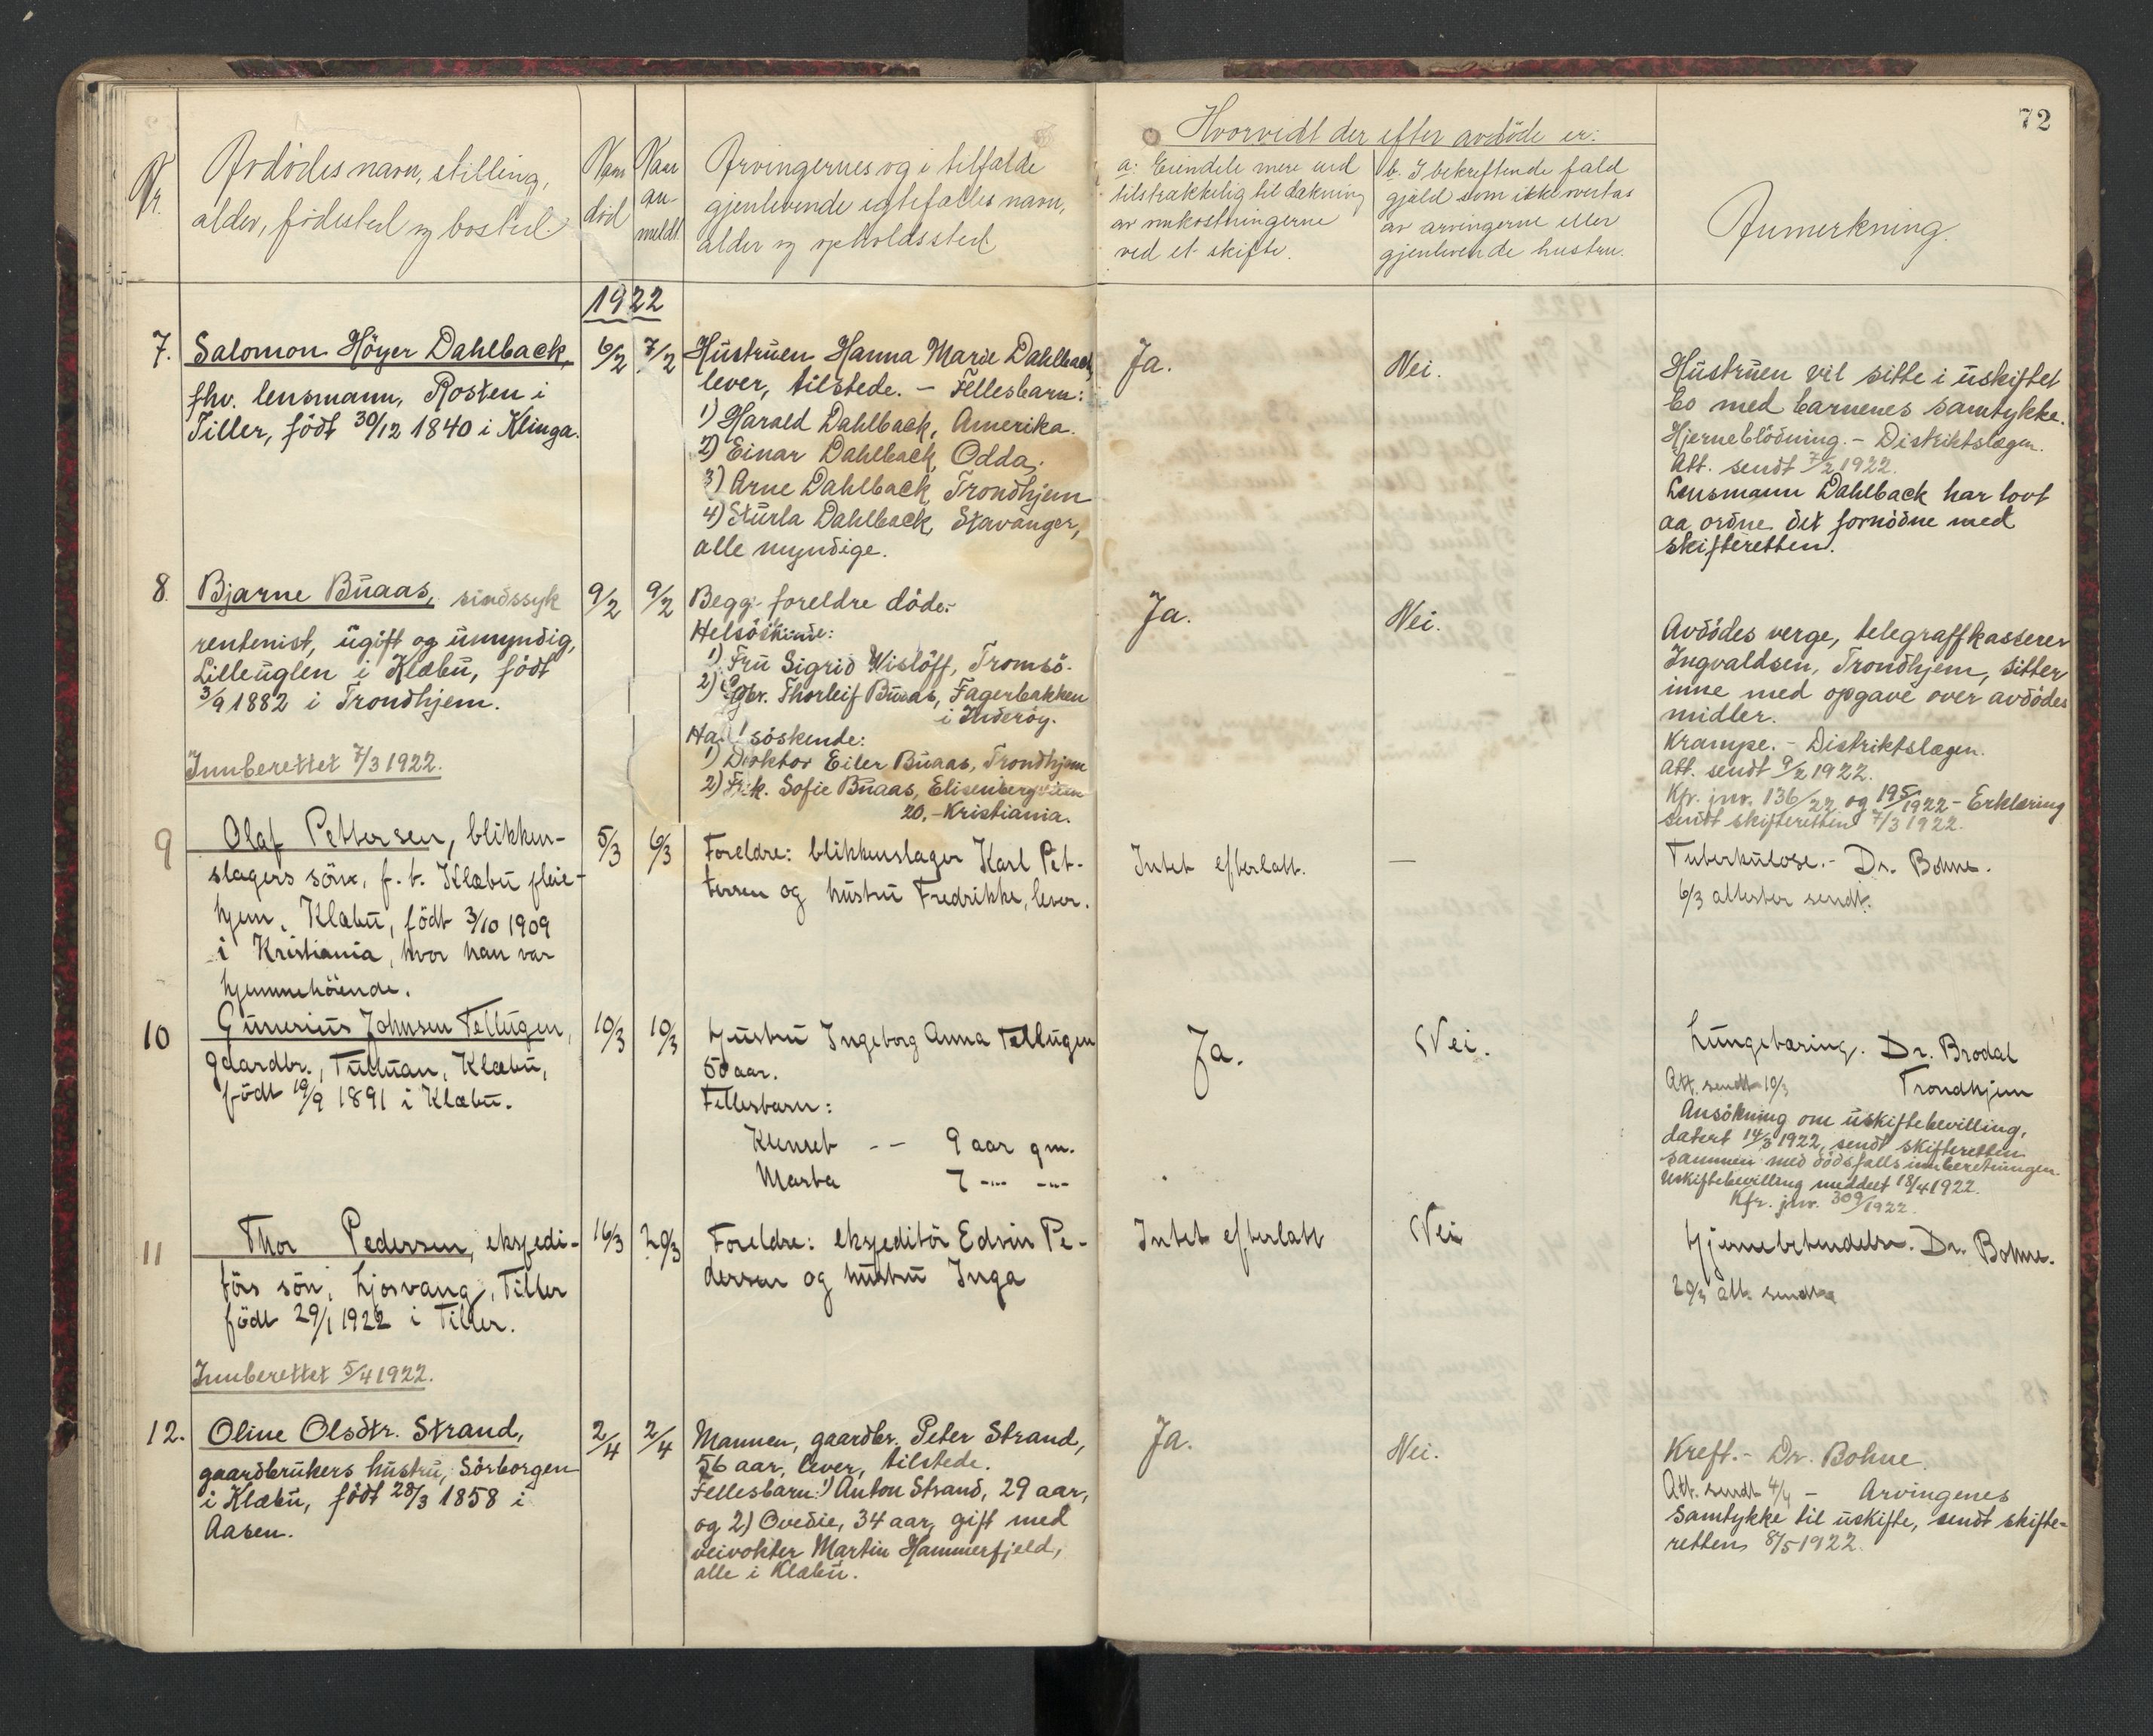 72
Nr.
Avdödes navn, stilling,
alder, födested og bosted.
Naar
död
Naar
an-
meldt
Arvingernes og i tilfælde
gjenlevende egtefælles navn,
alder og opholdssted
Hvorvidt der efter avdöde er:
a: Eiendele mere end
tilstrækkelig til dækning
av omkostningerne
ved et skifte.
b. I bekreftende fald
gjæld som ikke overtas
av arvingerne eller
gjenlevende hustru.
Anmerkning.
1922
7.
Salomon Höyer Dahlback,
fhv. lensmann, Rosten i
Tiller, födt 30/12 1840 i Klinga.
6/2
7/2
Hustruen Hanna Marie Dahlback,
lever, tilstede. – Fellesbarn:
1) Harald Dahlback, Amerika.
2) Einar Dahlback, Odda,
3) Arne Dahlback, Trondhjem
4) Sturla Dahlback, Stavanger,
alle myndige.
Ja.
Nei.
Hustruen vil sitte i uskiftet
bo med barnenes samtykke.
Hjerneblödning. – Distriktslægen.
Att. sendt 7/2 1922.
Lensmann Dahlback har lovt
aa ordne det fornödne med
skifteretten.
8.
Bjarne Buaas, sindssyk
rentenist, ugift og umyndig,
Lilleuglen i Klæbu, födt
3/9 1882 i Trondhjem.
Innberettet 7/3 1922.
9/2
9/2
Begge foreldre döde.
Helsöskende:
1) Fru Sigrid Wislöff, Tromsö.
2) Gbr. Thorleif Buaas, Fagerbakken
i Inderöy.
Halvsöskende:
1) Doktor Eiler Buaas, Trondhjem
2) Frk. Sofie Buaas, Elisenbergveien
20, – Kristiania.
Ja.
Nei.
Avdödes verge, telegrafkasserer
Ingvaldsen, Trondhjem, sitter
inne med opgave over avdödes
midler.
Krampe. – Distriktslægen.
Att. sendt 9/2 1922.
Kfr. jnr. 136/22 og 195/1922 – Erklæring
sendt skifteretten 7/3 1922.
9
Olaf Pettersen, blikken-
slagers sön, f. t. Klæbu pleie-
hjem, Klæbu, födt 3/10 1909
i Kristiania, hvor han var
hjemmehöende.
5/3
6/3
Foreldre: blikkenslager Karl Pet-
tersen og hustru Fredrikke, lever.
Intet efterlatt.
—
Tuberkulose. – Dr. Bohne.
6/3 attester sendt.
10
Gunerius Johnsen Tellugen,
gaardbr., Tulluan, Klæbu,
födt 19/9 1891 i Klæbu.
10/3
10/3
Hustru Ingeborg Anna Tellugen
50 aar.
Fellesbarn:
Klemet – – 9 aar gm.
Marta 7 –"– –"–
Ja.
Nei.
Lungebetæring. Dr. Brodal
Att. sendt 10/3 Trondhjem
Ansökning om uskiftebevilling,
datert 14/3 1922, sendt skifteretten
sammen med dödsfallsinnberetningen.
Uskiftebevilling meddelt 18/4 1922.
Kfr. jnr. 309/1922.
11
Thor Pedersen, ekspedi-
törs sön, Ljosvang, Tiller
födt 29/1 1922 i Tiller.
Innberettet 5/4 1922.
16/3
20/3
Foreldre: ekspeditör Edvin Pe-
dersen og hustru Inga
Intet efterlatt
Nei
Hjernebetendelse. Dr. Bohne.
20/3 att. sendt
12.
Oline Olsdtr. Strand,
gaardbrukers hustru, Sörborgen
i Klæbu, födt 28/3 1858 i
Aasen.
2/4
2/4
Mannen, gaardbr. Peter Strand,
56 aar, lever, tilstede.
Fellesbarn: 1) Anton Strand, 29 aar,
og 2) Ovedie, 34 aar, gift med
veivokter Martin Hammerfjeld,
alle i Klæbu.
Ja.
Nei.
Kreft. – Dr. Bohne.
Att. sendt 4/4 – Arvingenes
samtykke til uskifte, sendt skifte-
retten 8/5 1922.